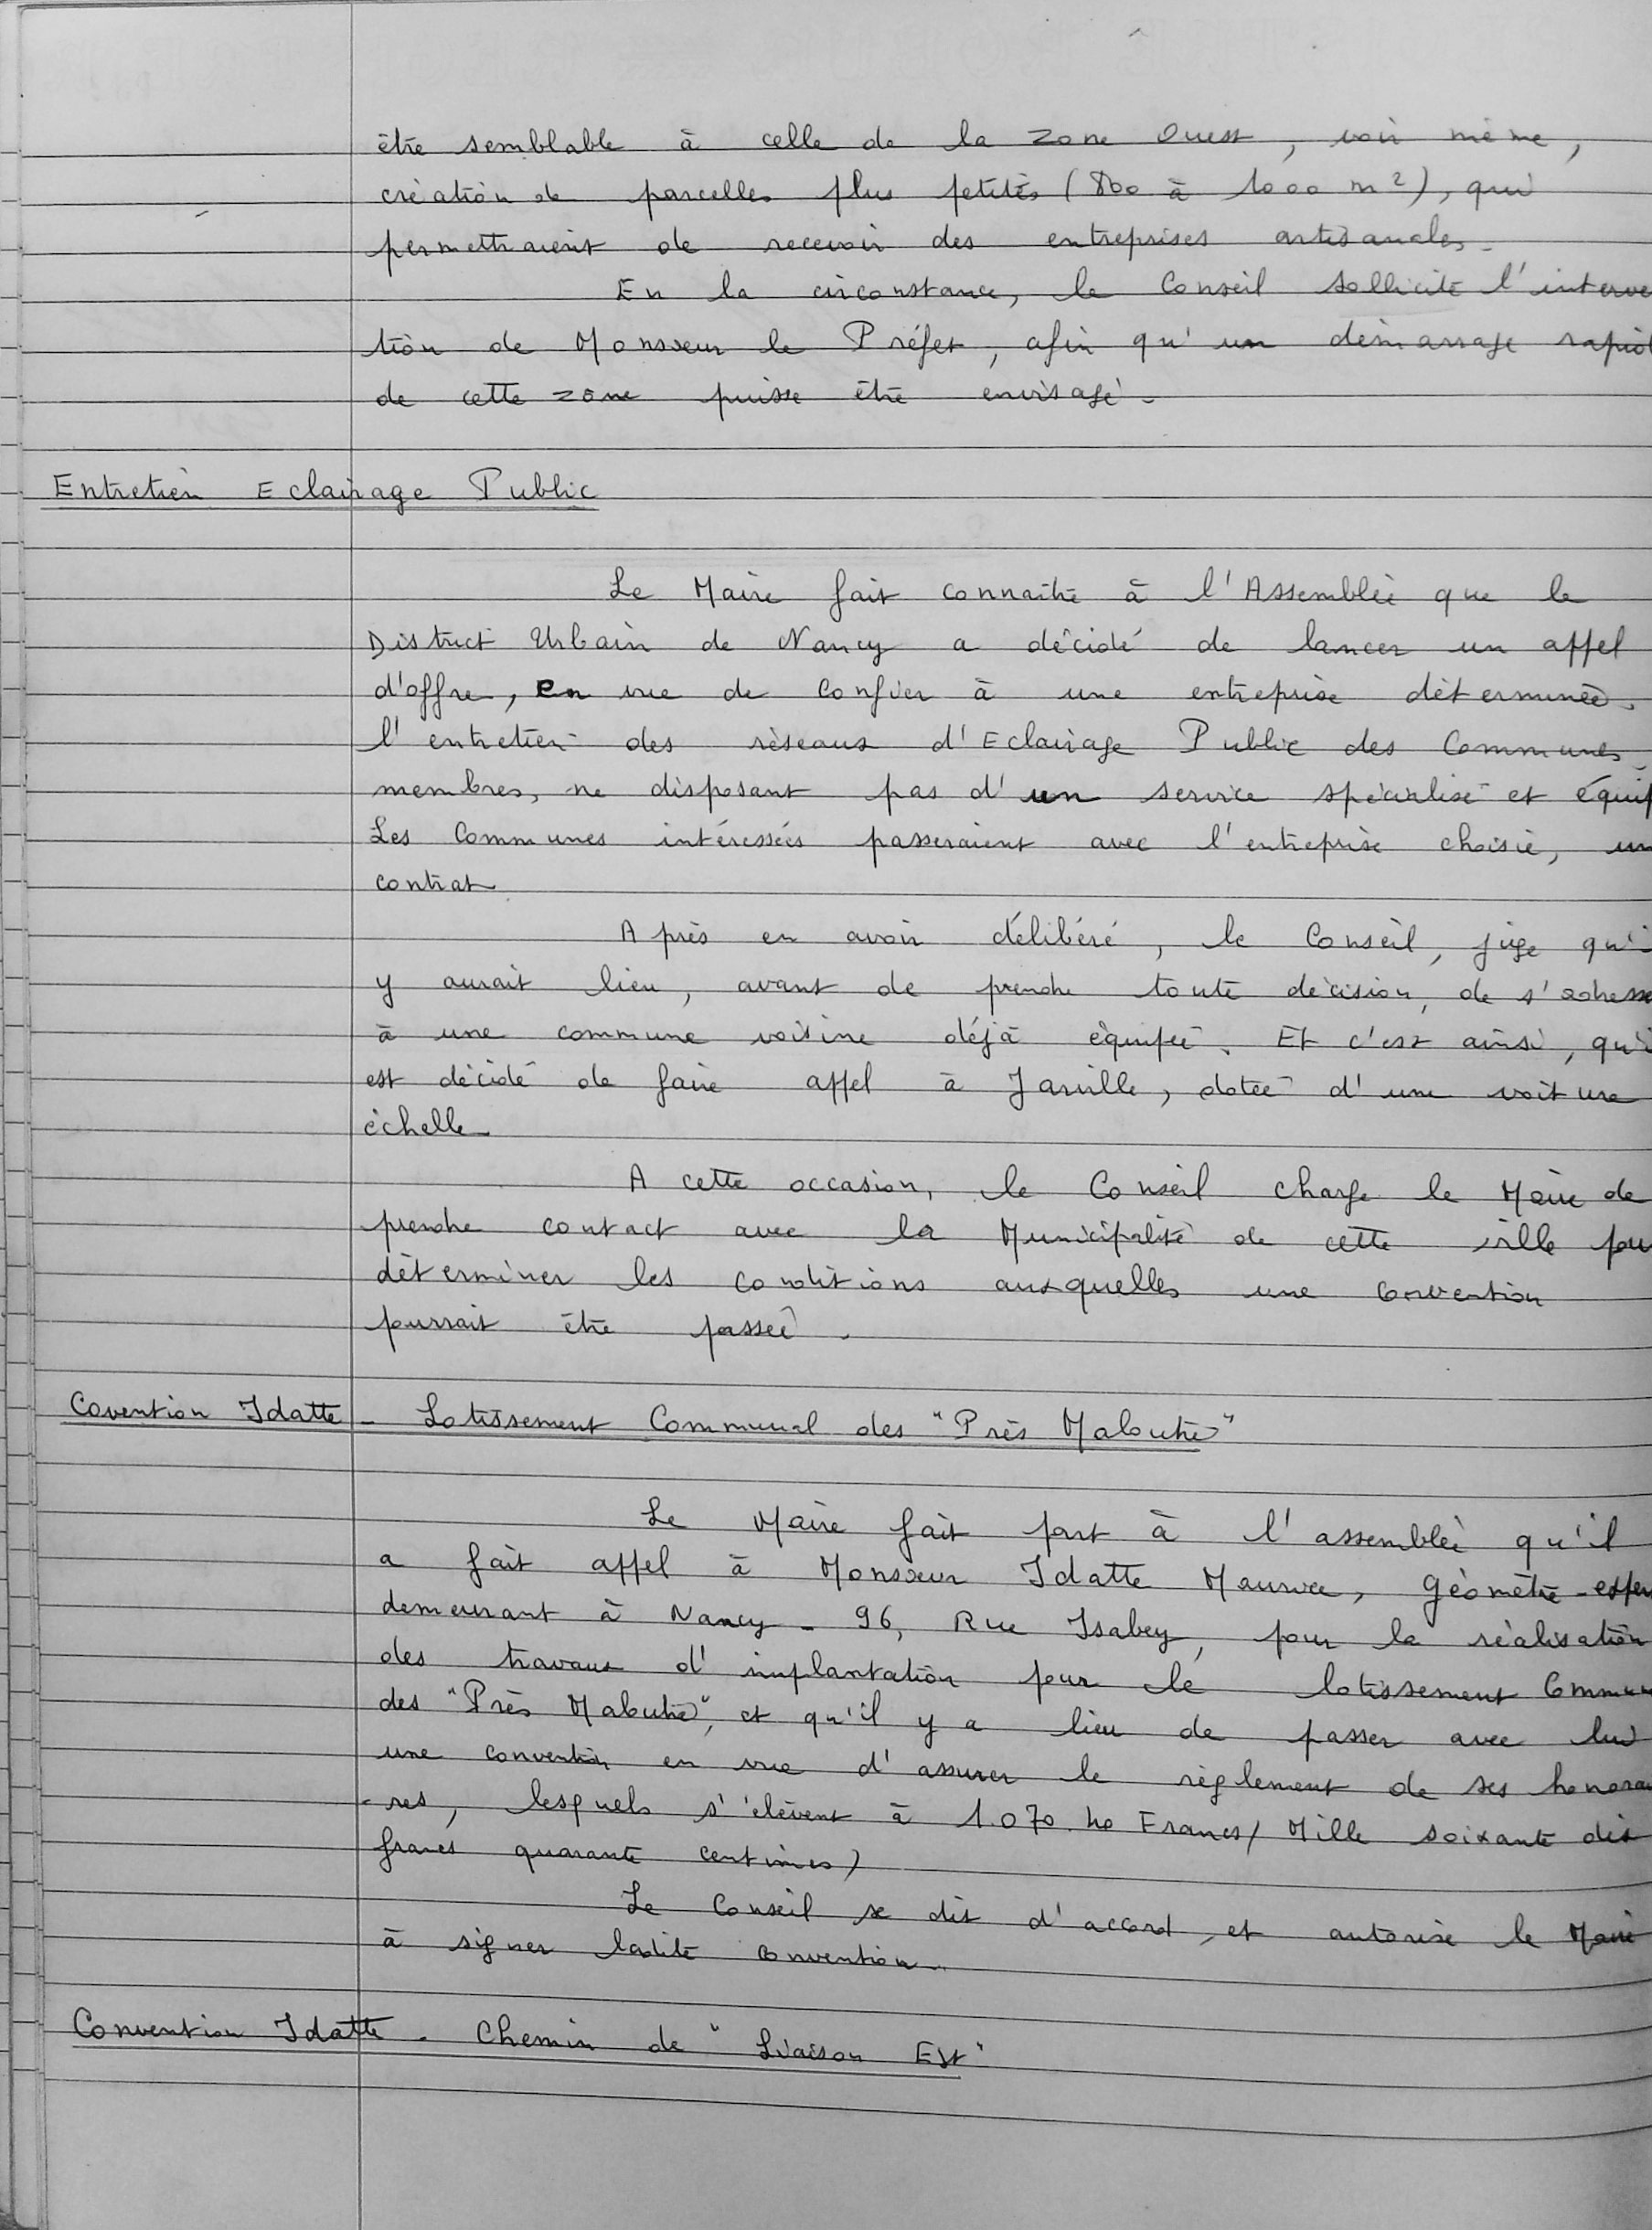 être semblable à celle de la zone Ouest, voir même,
création de parcelles plus petites (800 à 1000 m²), qui
permettraient de recevoir des entreprises artisanales.
En la circonstance, le Conseil sollicite l'interve
tion de Monsieur le Préfet, afin qu'un démarrage rapid
de cette zone puisse être envisagé.
Entretien Eclairage Public
Le Maire fait connaître à l'Assemblée que le
District Urbain de Nancy a décidé de lancer un appel
d'offre, en vue de confier à une entreprise déterminée,
l'entretien des réseaux d'Eclairage Public des Communes
membres, ne disposant pas d'un service spécialisé et équip
Les Communes intéressées passeraient avec l'entreprise choisie, un
contrat
Après en avoir délibéré, le Conseil, juge qu'i
y aurait lieu, avant de prendre toute décision, de s'adresse
à une commune voisine déjà équipée. Et c'est ainsi, qu'i
est décidé de faire appel à Jarville, dotée d'une voiture
échelle
A cette occasion, le Conseil charge le Maire de
prendre contact avec la Municipalité de cette ville pou
déterminer les conditions auxquelles une convention
pourrait être passée.
Covention Idatte - Lotissement Communal des "Près Maloutié"
Le Maire fait part à l'assemblée qu'il
a fait appel à Monsieur Idatte Maurice, Géomètre-exper
demeurant à Nancy - 96, Rue Isabey, pour la réalisation
des travaux d'implantation pour le lotissement Commun
des "Près Maloutié", et qu'il y a lieu de passer avec lui
une convention en vue d'assurer le règlement de ses honorai
-res, lesquels s'élèvent à 1.070.40 Francs (Mille soixante dix
francs quarante centimes)
Le Conseil se dit d'accord, et autorise le Maire
à signer ladite convention.
Convention Idatte - Chemin de "Liaison Est"